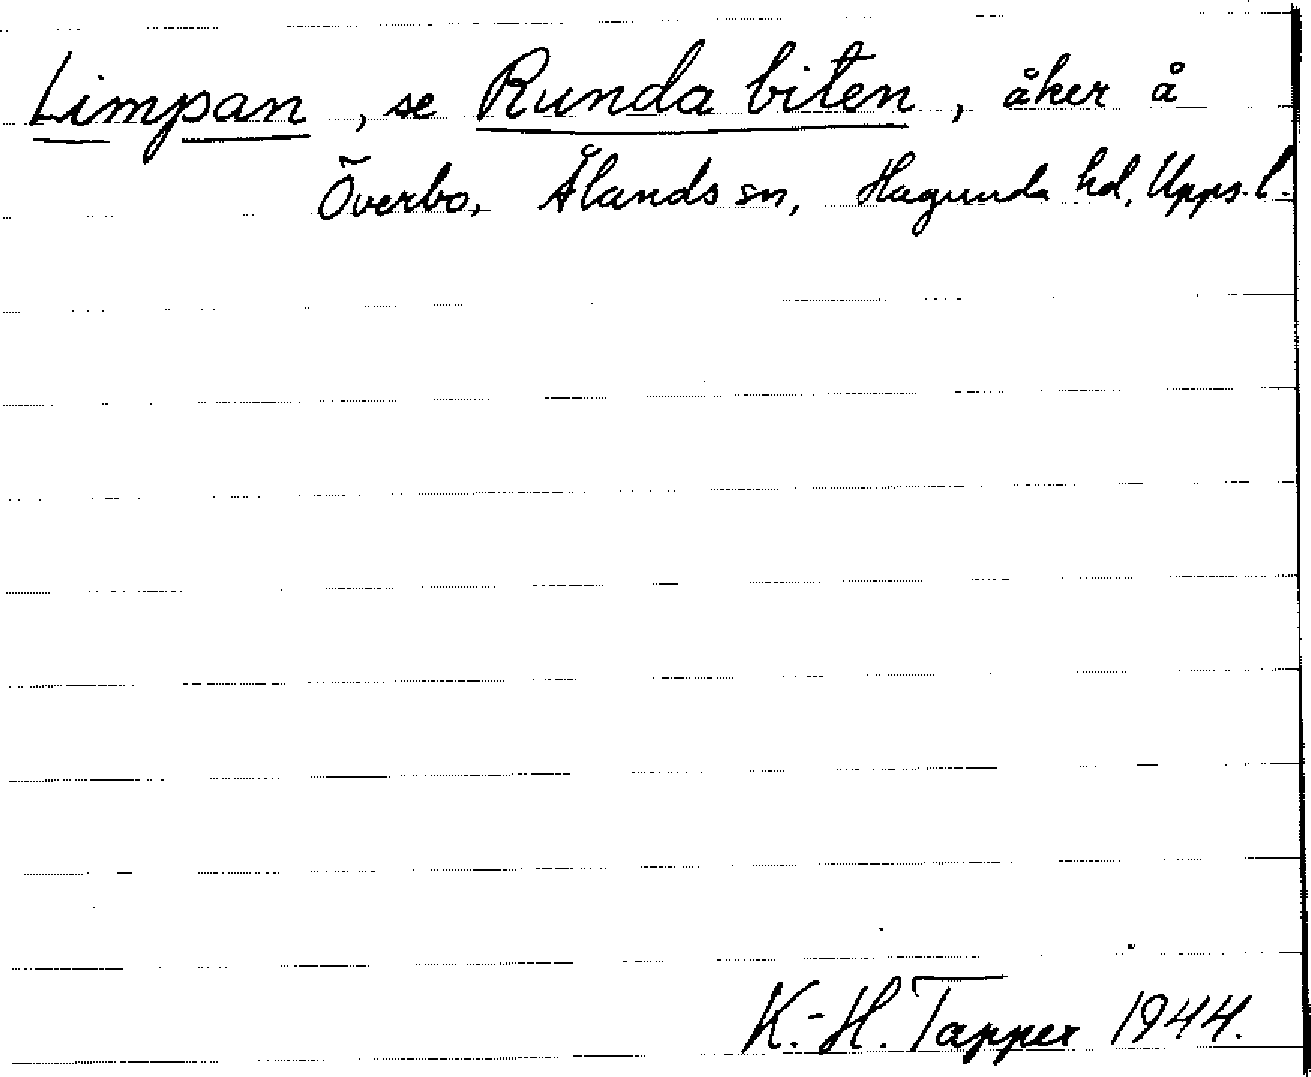 Limpan, se Runda biten, åker å
Överbo, Ålands sn, Hagunda hd, Upps. l.
K.-H. Tapper 1944.